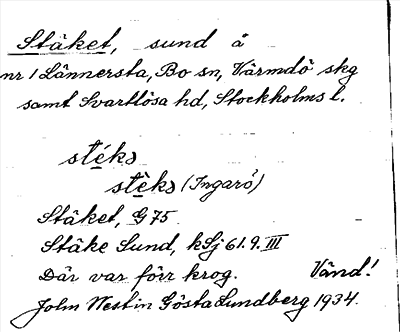 Stäket, sund å
nr 1 Lännersta, Bo sn, Värmdö skg
samt Svartlösa hd, Stockholms l.
stékə
stèkə (Ingarö)
Stäket, G 75
Stäke Sund, kSj 61.9.III
Där var förr krog. Vänd!
John Westin Gösta Lundberg 1934.